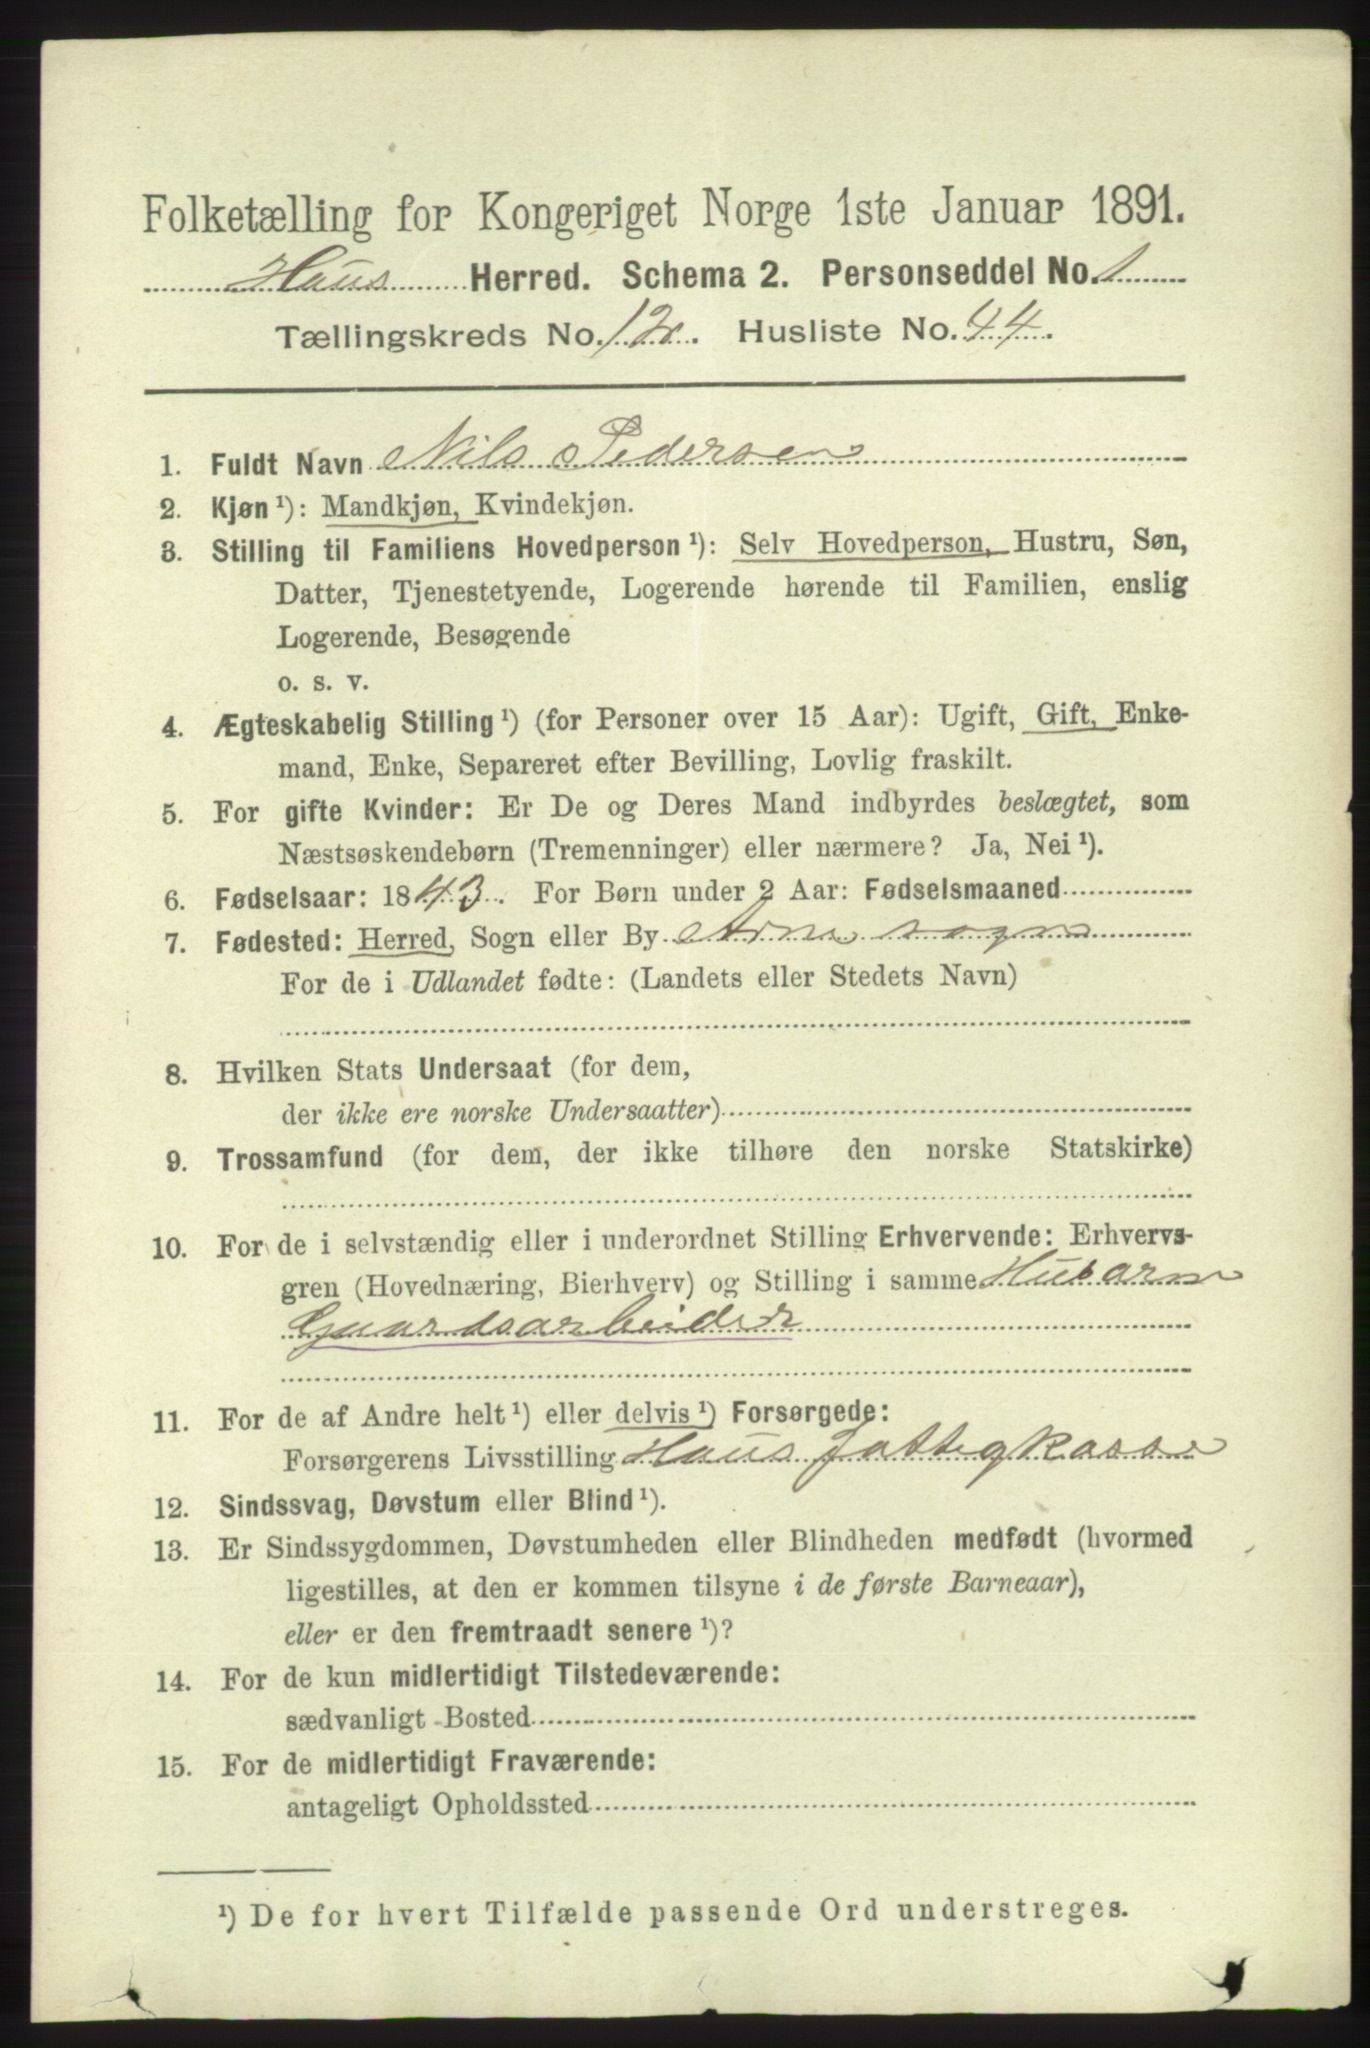 Folketælling for Kongeriget Norge 1ste Januar 1891.
Haus Herred. Schema 2. Personseddel No. 1
Tællingskreds No. 12. Husliste No. 44.
1. Fuldt Navn Nils Pedersen
2. Kjøn ¹): Mandkjøn, Kvindekjøn.
3. Stilling til Familiens Hovedperson ¹): Selv Hovedperson, Hustru, Søn,
Datter, Tjenestetyende, Logerende hørende til Familien, enslig
Logerende, Besøgende
o. s. v.
4. Ægteskabelig Stilling ¹) (for Personer over 15 Aar): Ugift, Gift, Enke-
mand, Enke, Separeret efter Bevilling, Lovlig fraskilt.
5. For gifte Kvinder: Er De og Deres Mand indbyrdes beslægtet, som
Næstsøskendebørn (Tremenninger) eller nærmere? Ja, Nei ¹).
6. Fødselsaar: 1843. For Børn under 2 Aar: Fødselsmaaned
7. Fødested: Herred, Sogn eller By Arne sogn
For de i Udlandet fødte: (Landets eller Stedets Navn)
8. Hvilken Stats Undersaat (for dem,
der ikke ere norske Undersaatter)
9. Trossamfund (for dem, der ikke tilhøre den norske Statskirke)
10. For de i selvstændig eller i underordnet Stilling Erhvervende: Erhvervs-
gren (Hovednæring, Bierhverv) og Stilling i samme
Gaardsarbeider
11. For de af Andre helt ¹) eller delvis ¹) Forsørgede:
Forsørgerens Livsstilling Haus fattigkasse
12. Sindssvag, Døvstum eller Blind ¹).
13. Er Sindssygdommen, Døvstumheden eller Blindheden medfødt (hvormed
ligestilles, at den er kommen tilsyne i de første Barneaar),
eller er den fremtraadt senere ¹)?
14. For de kun midlertidigt Tilstedeværende:
sædvanligt Bosted
15. For de midlertidigt Fraværende:
antageligt Opholdssted
¹) De for hvert Tilfælde passende Ord understreges.